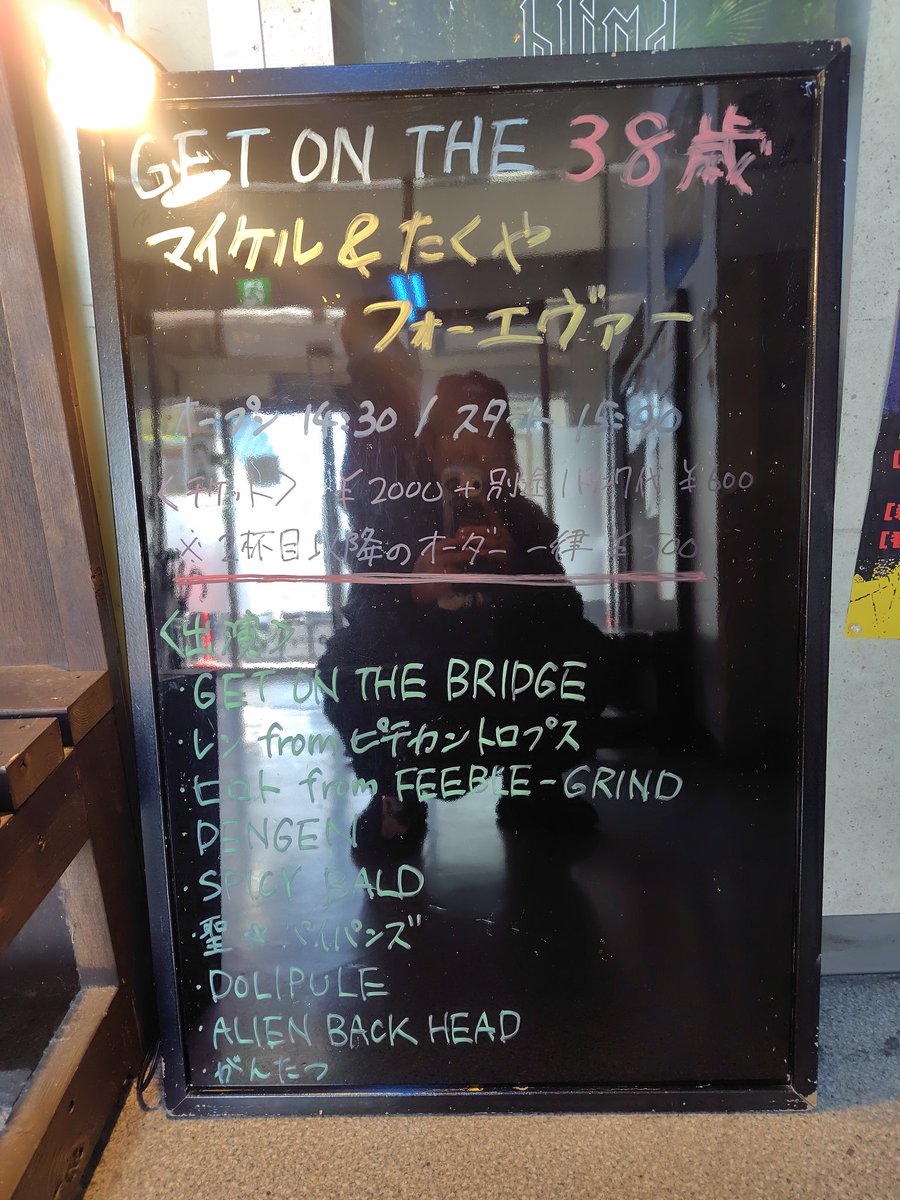 blind
GET ON THE 38歳
マイケル & たくや
フォーエヴァー
オープン 14:30 / スタート 15:00
〈チケット〉 ¥2000 + 別途1ドリンク代 ¥600
※ 2杯目以降のオーダー 一律 ¥500
〈出演〉
・GET ON THE BRIDGE
・レン from ピテカントロプス
・ヒロト from FEEBLE-GRIND
・DENGEN
・SPICY BALD
・聖☆パイパンズ
・DOLIPULE
・ALIEN BACK HEAD
・がんたつ